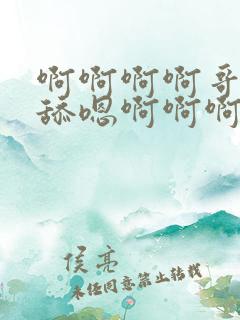 啊啊啊啊哥
舔嗯啊啊啊
侯亮
未经同意禁止转载